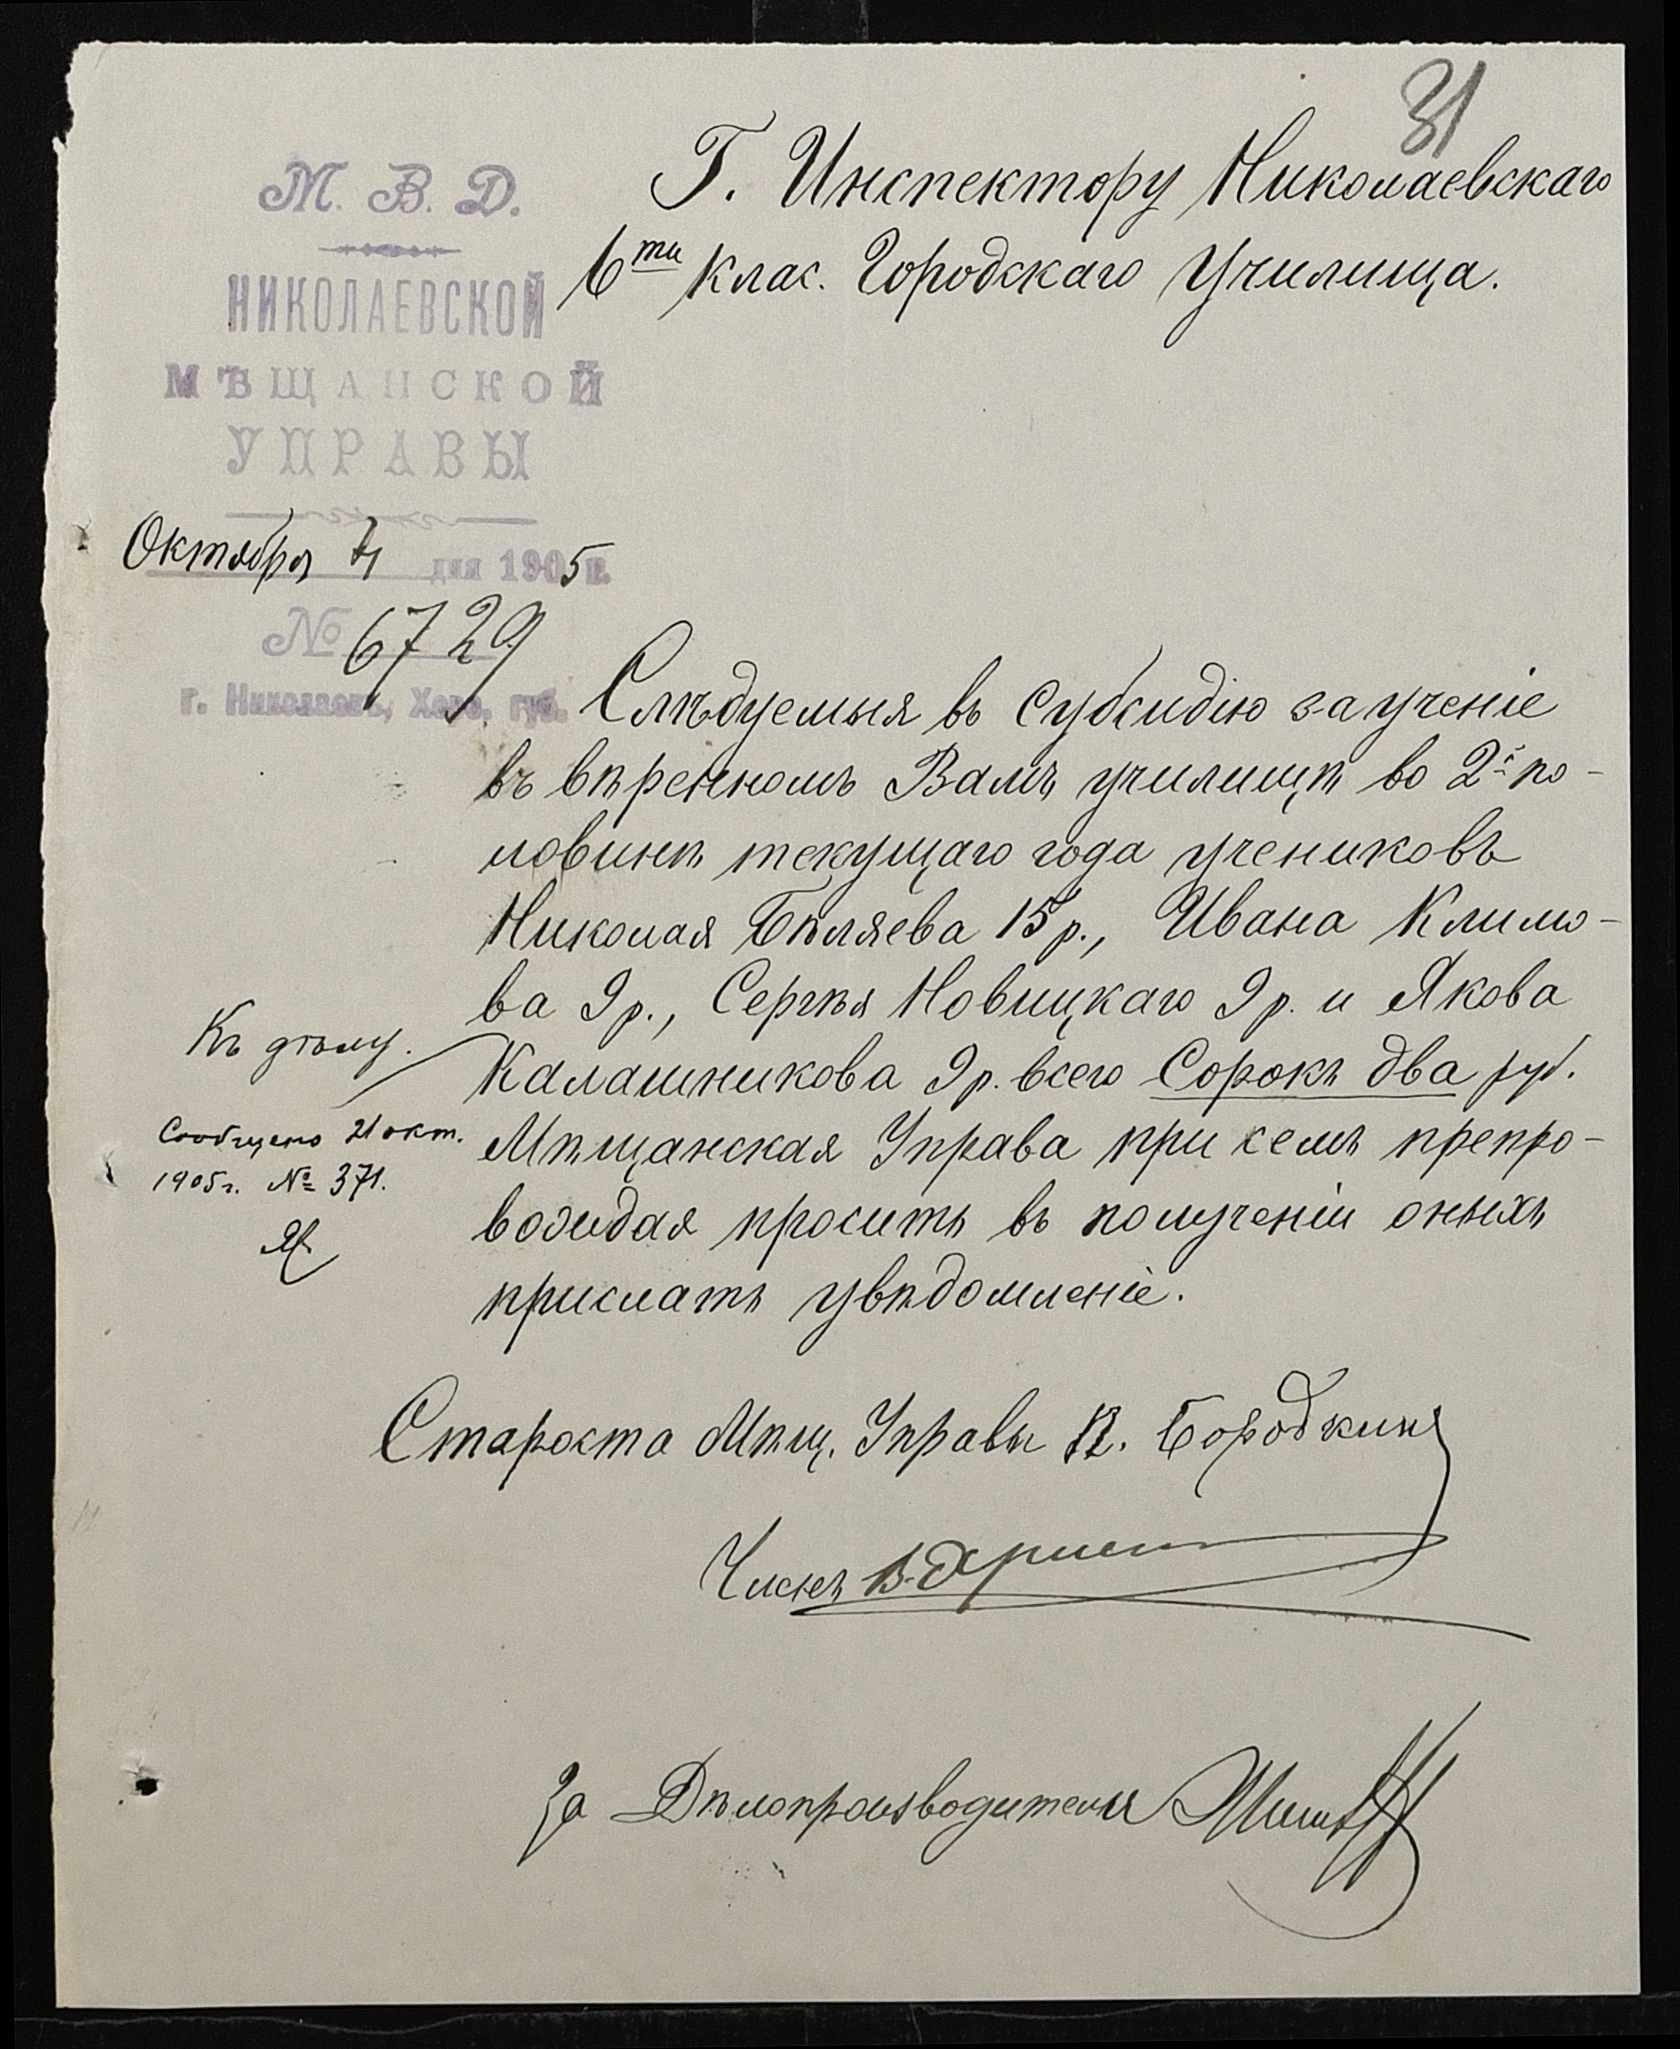 31
М. В. Д.
НИКОЛАЕВСКОЙ
МѢЩАНСКОЙ
УПРАВЫ
Октября 4 дня 1905 г.
№ 6729
г. Николаевъ, Херс. губ.
Г. Инспектору Николаевскаго
6ти клас. Городскаго Училища.
Слѣдуемыя въ субсидію за ученіе
въ ввѣренномъ Вамъ училищѣ во 2й по-
ловинѣ текущаго года учениковъ
Николая Бѣляева 15 р., Ивана Климо-
ва 9 р., Сергѣя Новицкаго 9 р. и Якова
Калашникова 9 р. всего Сорокъ два руб.
Мѣщанская Управа при семъ препро-
вождая проситъ въ полученіи оныхъ
прислать увѣдомленіе.
Къ дѣлу.
Сообщено 21 окт.
1905 г. № 371.
Староста Мѣщ. Управы П. Бородкинъ
Членъ В.
За Дѣлопроизводителя